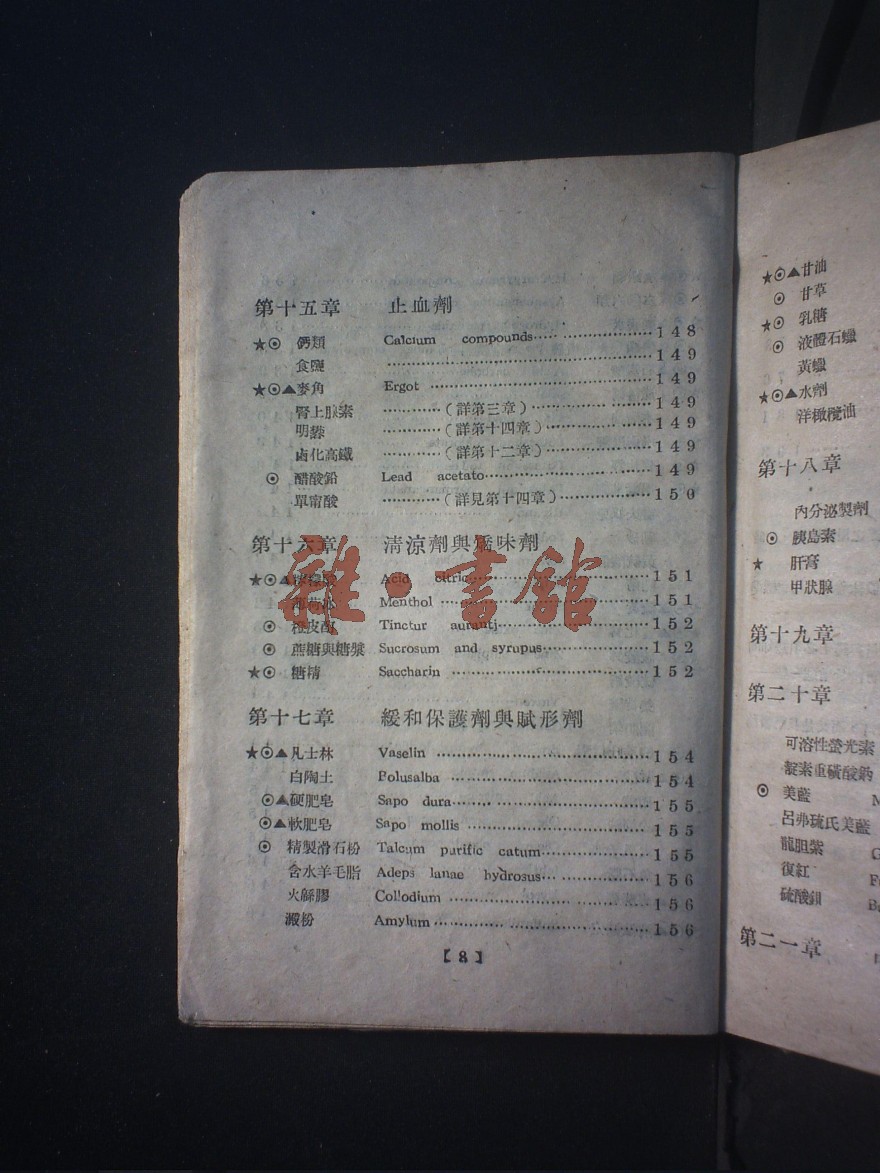 第十五章 止血劑
★⊙ 鈣類 Calcium compounds 148
食鹽 149
★⊙▲麥角 Ergot 149
腎上腺素 (詳第三章) 149
明礬 (詳第十四章) 149
鹵化高鐵 (詳第十二章) 149
⊙ 醋酸鉛 Lead acetato 149
單甯酸 (詳見第十四章) 150
第十六章 清涼劑與矯味劑
★⊙▲ Acid citric 151
薄荷冰 Menthol 151
⊙ 橙皮酊 Tinctur aurantj 152
⊙ 蔗糖與糖漿 Sucrosum and syrupus 152
★⊙ 糖精 Saccharin 152
第十七章 緩和保護劑與賦形劑
★⊙▲凡士林 Vaselin 154
白陶土 Polusalba 154
⊙▲硬肥皂 Sapo dura 155
⊙▲軟肥皂 Sapo mollis 155
⊙ 精製滑石粉 Talcum purific catum 155
含水羊毛脂 Adeps lanae hydrosus 156
火綿膠 Collodium 156
澱粉 Amylum 156
【8】
雜·書館
★⊙▲甘油
⊙ 甘草
★⊙ 乳糖
⊙ 液體石蠟
黃蠟
★⊙▲水劑
洋橄欖油
第十八章
內分泌製劑
⊙ 胰島素
★ 肝膏
甲狀腺
第十九章
第二十章
可溶性螢光素
靛素重磺酸鈉
⊙ 美藍
呂弗硫氏美藍
龍胆紫
復紅
硫酸鋇
第二一章